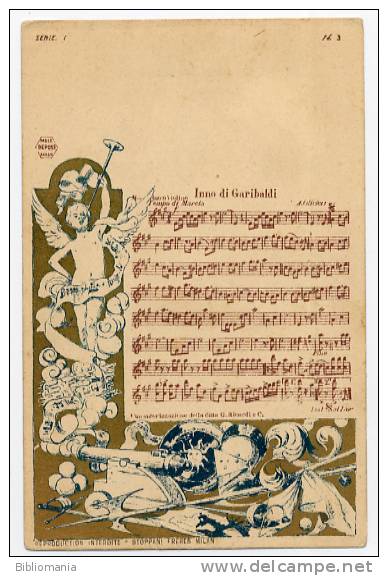 SERIE. I
N. 3
DEPOSÉ
Inno di Garibaldi
Tempo di Marcia
A. Olivieri
Fine
Con autorizzazione della ditta G. Ricordi e C.
REPRODUCTION INTERDITE - STOPPANI FRERES MILAN
Bibliomania
delcampe.net